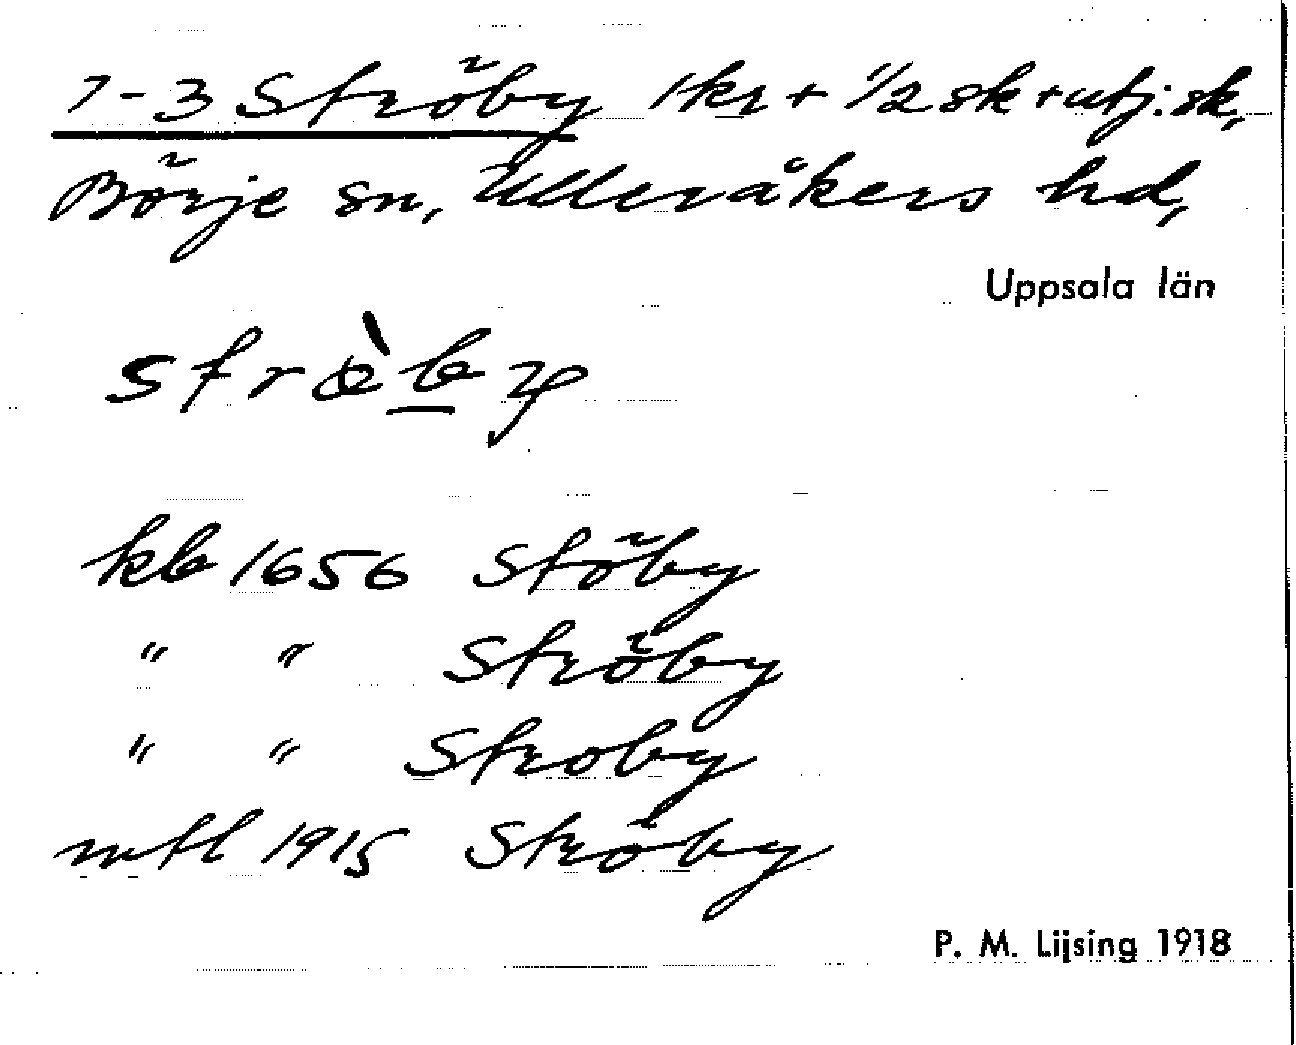 1-3 Ströby 1 kr + 1/2 sk + utj. sk,
Börje sn, Ulleråkers hd,
Uppsala län
strø̀by
kb 1656 Stöby
" " Ströby
" " Stroby
mtl 1915 Ströby
P. M. Lijsing 1918